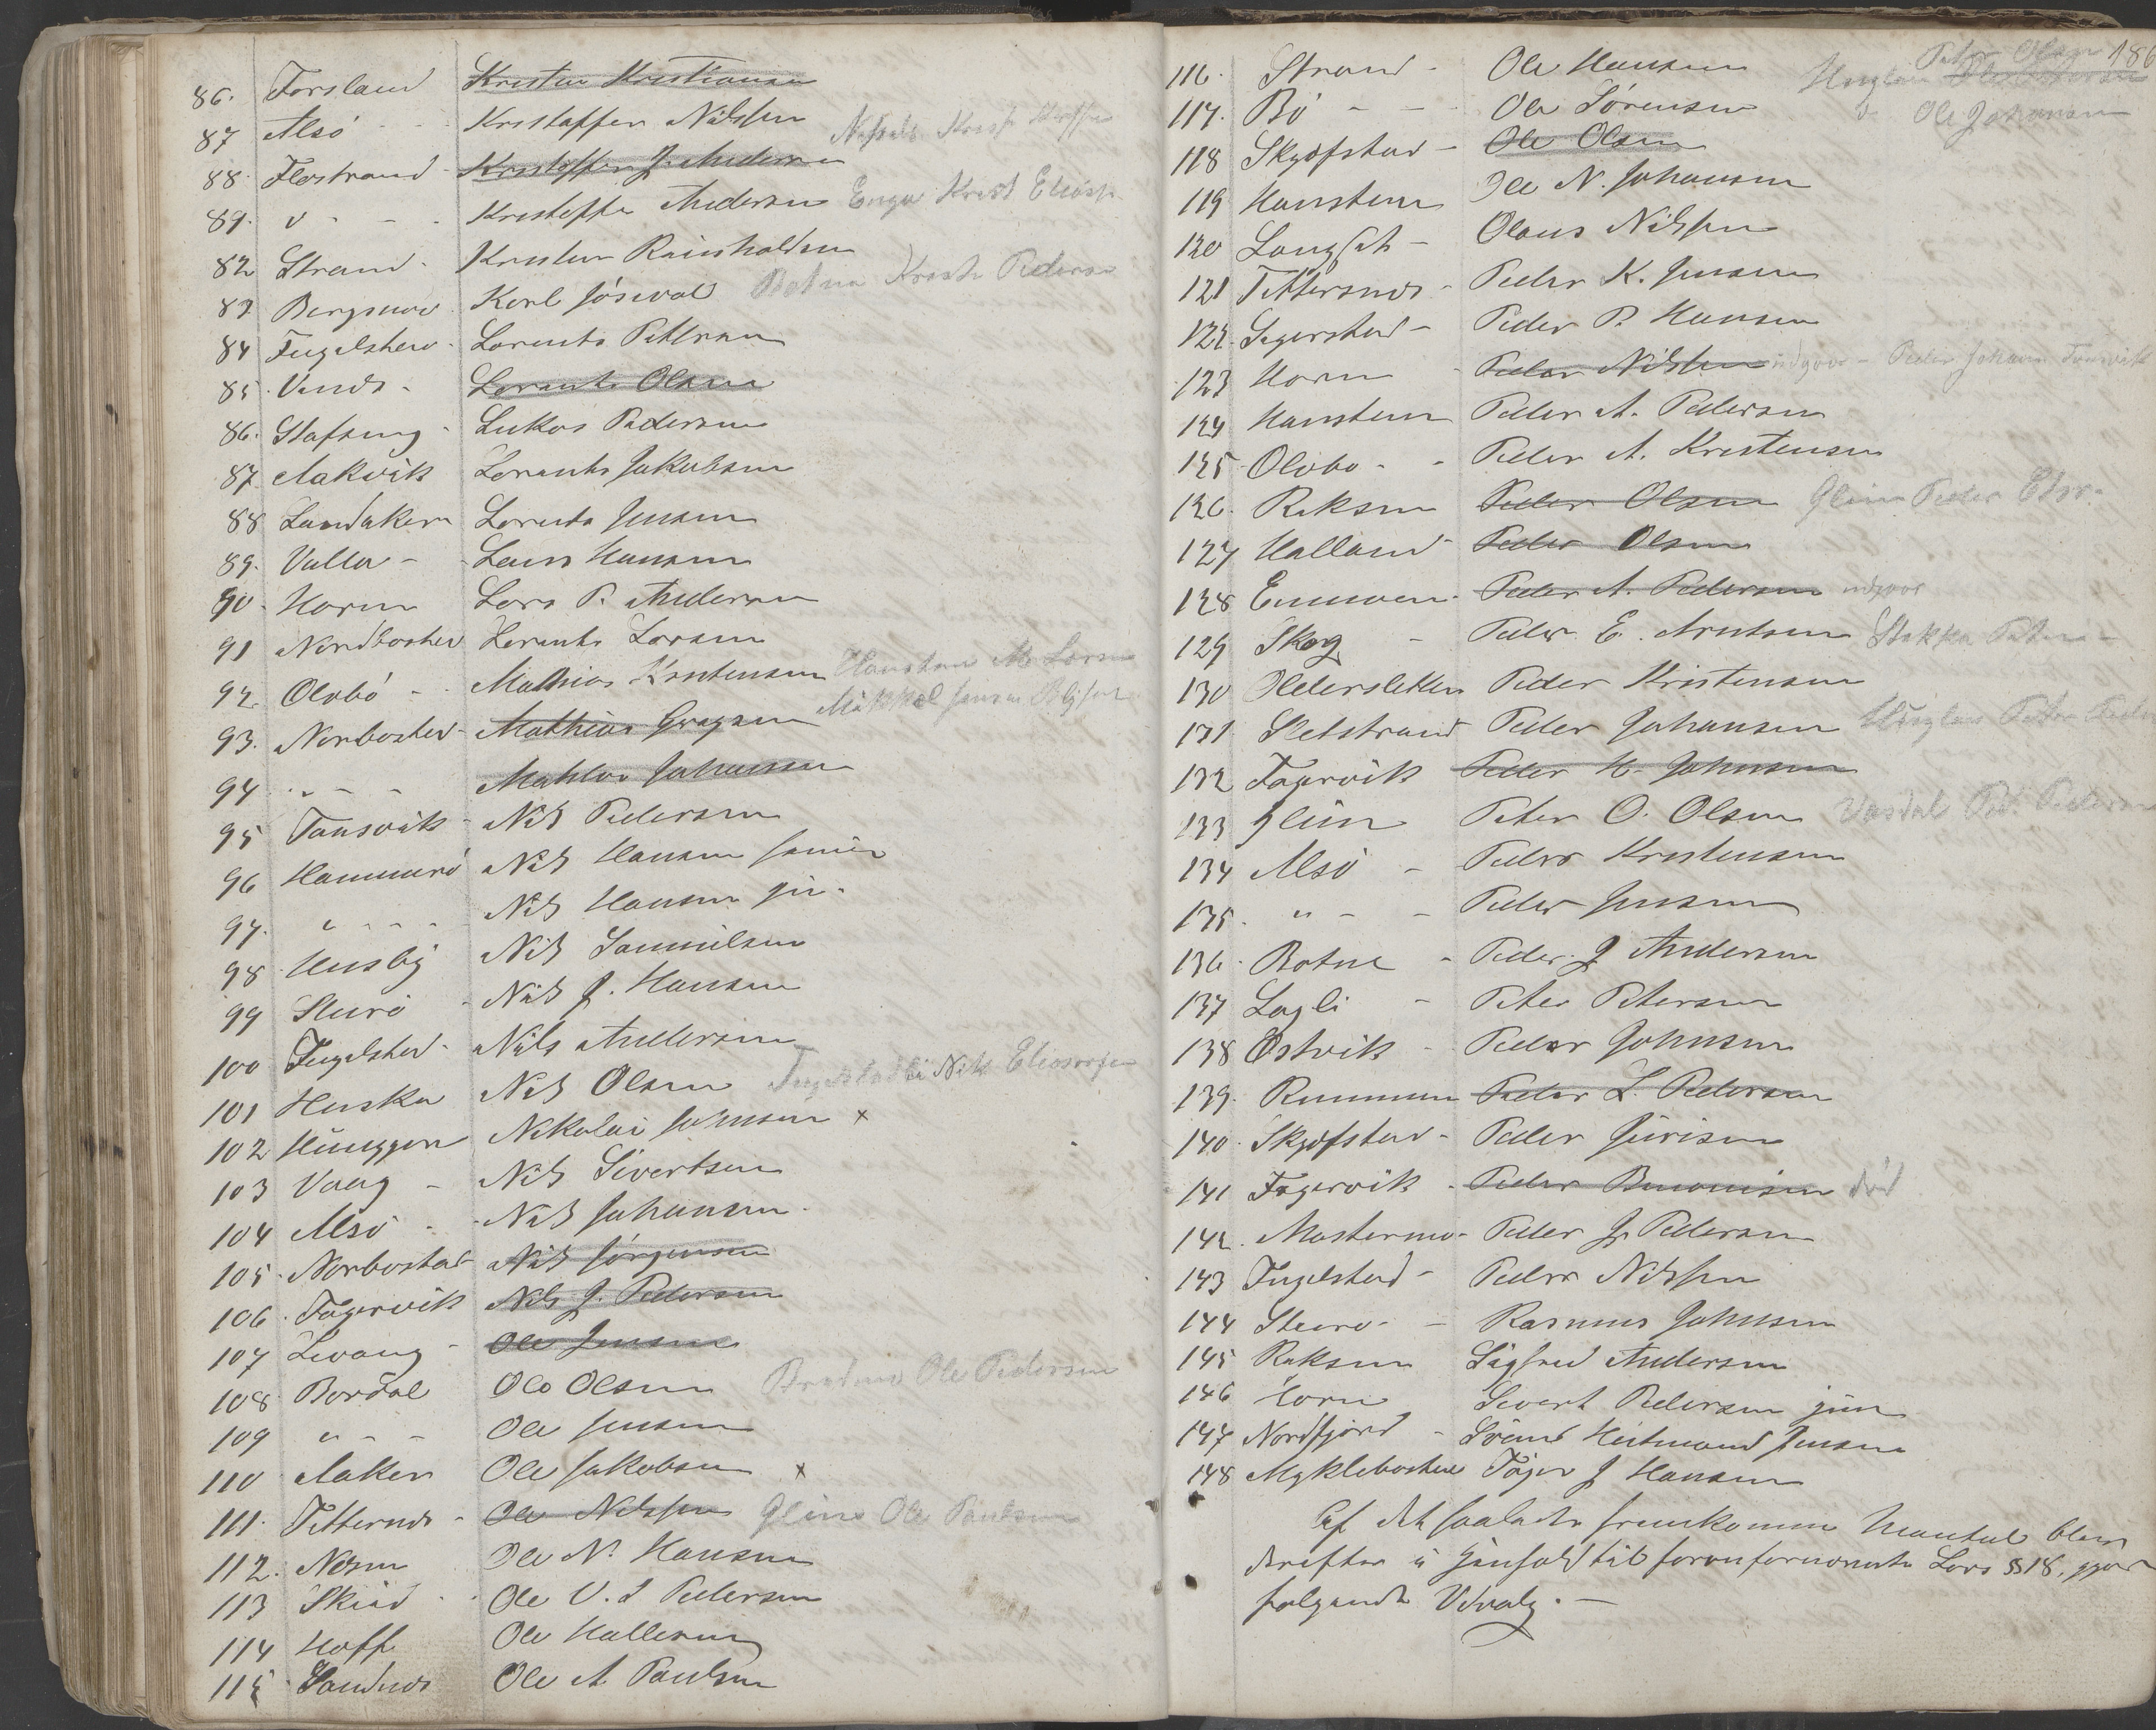 86. Forsland Kristen Kristiansen
87 Alsö - - Kristoffer Nilssen
88. Flostrand - Kristoffer J. Andersen
89. " - - - Kristoffer Andersen Enga Krist Eliass
82 Strand - Kristen Reinholdsen
83 Bergsnov Karl Jörival Botna Krist Pedersen
84 Fugelsherv - Lorents Pettersen
85 Vands - Lorents Olsen
86. Stafseng - Lukas Pedersen
87 Aakvik Lorents Jakobsen
88 Landaker Lorents Jensen
89. Valla - Lars Hansen
90 - Horn Lars P. Andersen
91 Nordbosted Lorents Larsen
92. Olobö - - Mathias Kristensen Hansteen M Larsen
93. Norbosted - Mathias Gregersen Mikkel Jensen
94 " - - Mathias Johansen
95 Tonsvik - Nils Pedersen
96 Hammerö Nils Hansen senior
97. " - - - Nils Hansen jr.
98 Husby Nils Samuelsen
99 Sturö - Nils J. Hansen
100 Fugelsted - Nils Andersen
101 Huska Nils Olsen Nils Eliassen
102 Hunggen Nikolai Johnsen x
103 Vaag - Nils Sivertsen
104 Alsö - Nils Johansen
105 Norbostad Nils Jörgensen
106. Fagervik Nils J. Pedersen
107 Levang - Ole Jensen
108 Bordal Ole Olsen Ole Pedersen
109 " - - Ole Jensen
110 Aaker Ole Jakobsen x
111. Tetternes - Ole Nilssen Glein Ole Paulsen
112. Nesna Ole N. Hansen
113 Skied - Ole U. I Pedersen
114 Hoff Ole Hallesen
115 Sandnes Ole A Paulsen
186
116. Strand - Ole Hansen Huglen Peter Olsen
117. Bö - - - Ole Sörensen do Ole Johansen
118 Skjefstad - Ole Olsen
119 Hansteen Ole N. Johansen
120 Langset - Olaus Nilssen
121 Tetternes - Peder K. Jensen
122 Segerstad - Peder P. Hansen
123 Horn - Peder Nilssen udgaar - Peder Johan Tonsvik
124 Hansteen Peder A. Pedersen
125 Olobo - - Peder A. Kristensen
126. Reksen Peder Olsen Glein Peder
127 Halland - Peder Olsen
128 Enmoen - Peder A. Pedersen udgaar
129 Skog - Peder E. Arntsen Stokka Peter
130 Oldersletten Peder Kristensen
131 Sletstrand Peder Johansen Huglen Peter
132 Fagervik Peder H. Johnsen
133 Glein Peter O. Olsen Vasdal Ped. Pedersen
134 Alsö - Peder Kristensen
135. " - - Peder Jensen
136. Botne - Peder J Andersen
137 Lagli - Peter Petersen
138 Østvik - Peder Johnsen
139. Remmen Peder L. Pedersen
140. Skjefstad - Peder Jürisen
141 Fagervik - Peder Benonisen död
142. Mastermo - Peder J. Pedersen
143 Fugelstad - Peder Nilssen
144 Steoro - - Rasmus Johnsen
145 Reksen Sigfred Andersen
146 Horn Sivert Pedersen jün
147 Nordfjord - Svend Heitmand Jensen
148 Myklebostad Töger J Hansen
Af det saaledes fremkomne Mantal blev
derefter i Henhold til foranförnævnte Lovs §18, gjort
følgende Udvalg. -